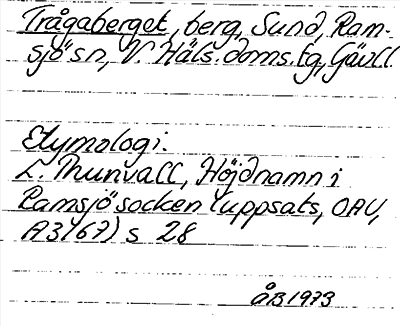 Trågaberget, berg, Sund, Ram-
sjö sn, V. Häls. doms. tg, Gävl l.
Etymologi:
L. Thunvall, Höjdnamn i
Ramsjö socken (uppsats, OAU,
A3167) s 28
ÅB 1973